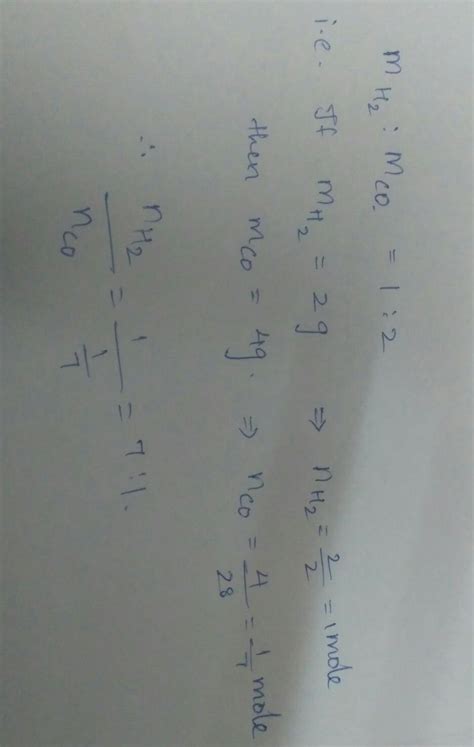 m_H₂ : m_CO. = 1 : 2
i.e. If m_H₂ = 2g ⇒ n_H₂ = 2/2 = 1 mole
then m_CO = 4g. ⇒ n_CO = 4/28 = 1/7 mole
∴ n_H₂/n_CO = 1/(1/7) = 7 : 1.